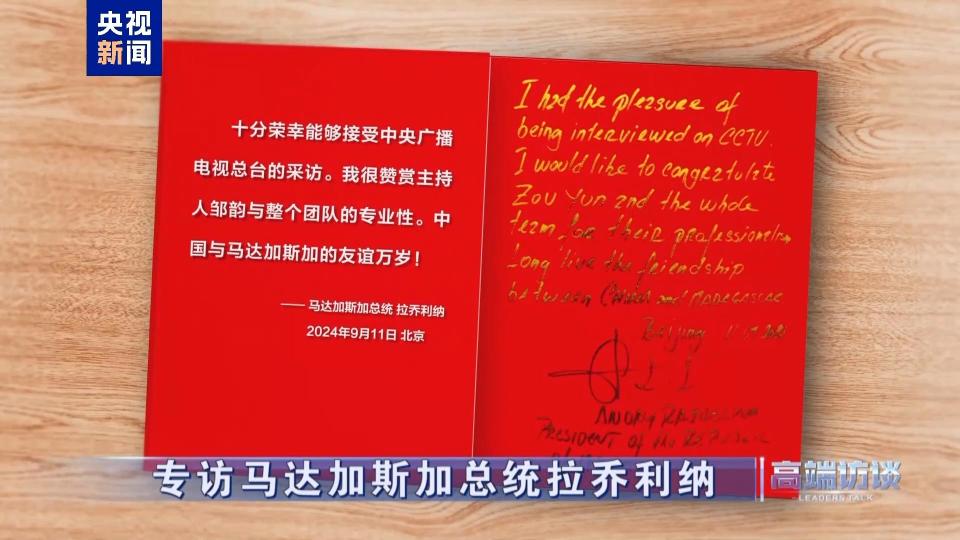 央视
新闻
十分荣幸能够接受中央广播
电视总台的采访。我很赞赏主持
人邹韵与整个团队的专业性。中
国与马达加斯加的友谊万岁！
—— 马达加斯加总统 拉乔利纳
2024年9月11日 北京
I had the pleasure of
being interviewed on CCTV.
I would like to congratulate
Zou Yun and the whole
team for their professionalism
Long live the friendship
between China and MADAGASCAR
Beijing
PRESIDENT of the
专访马达加斯加总统拉乔利纳
高端访谈
LEADERS TALK